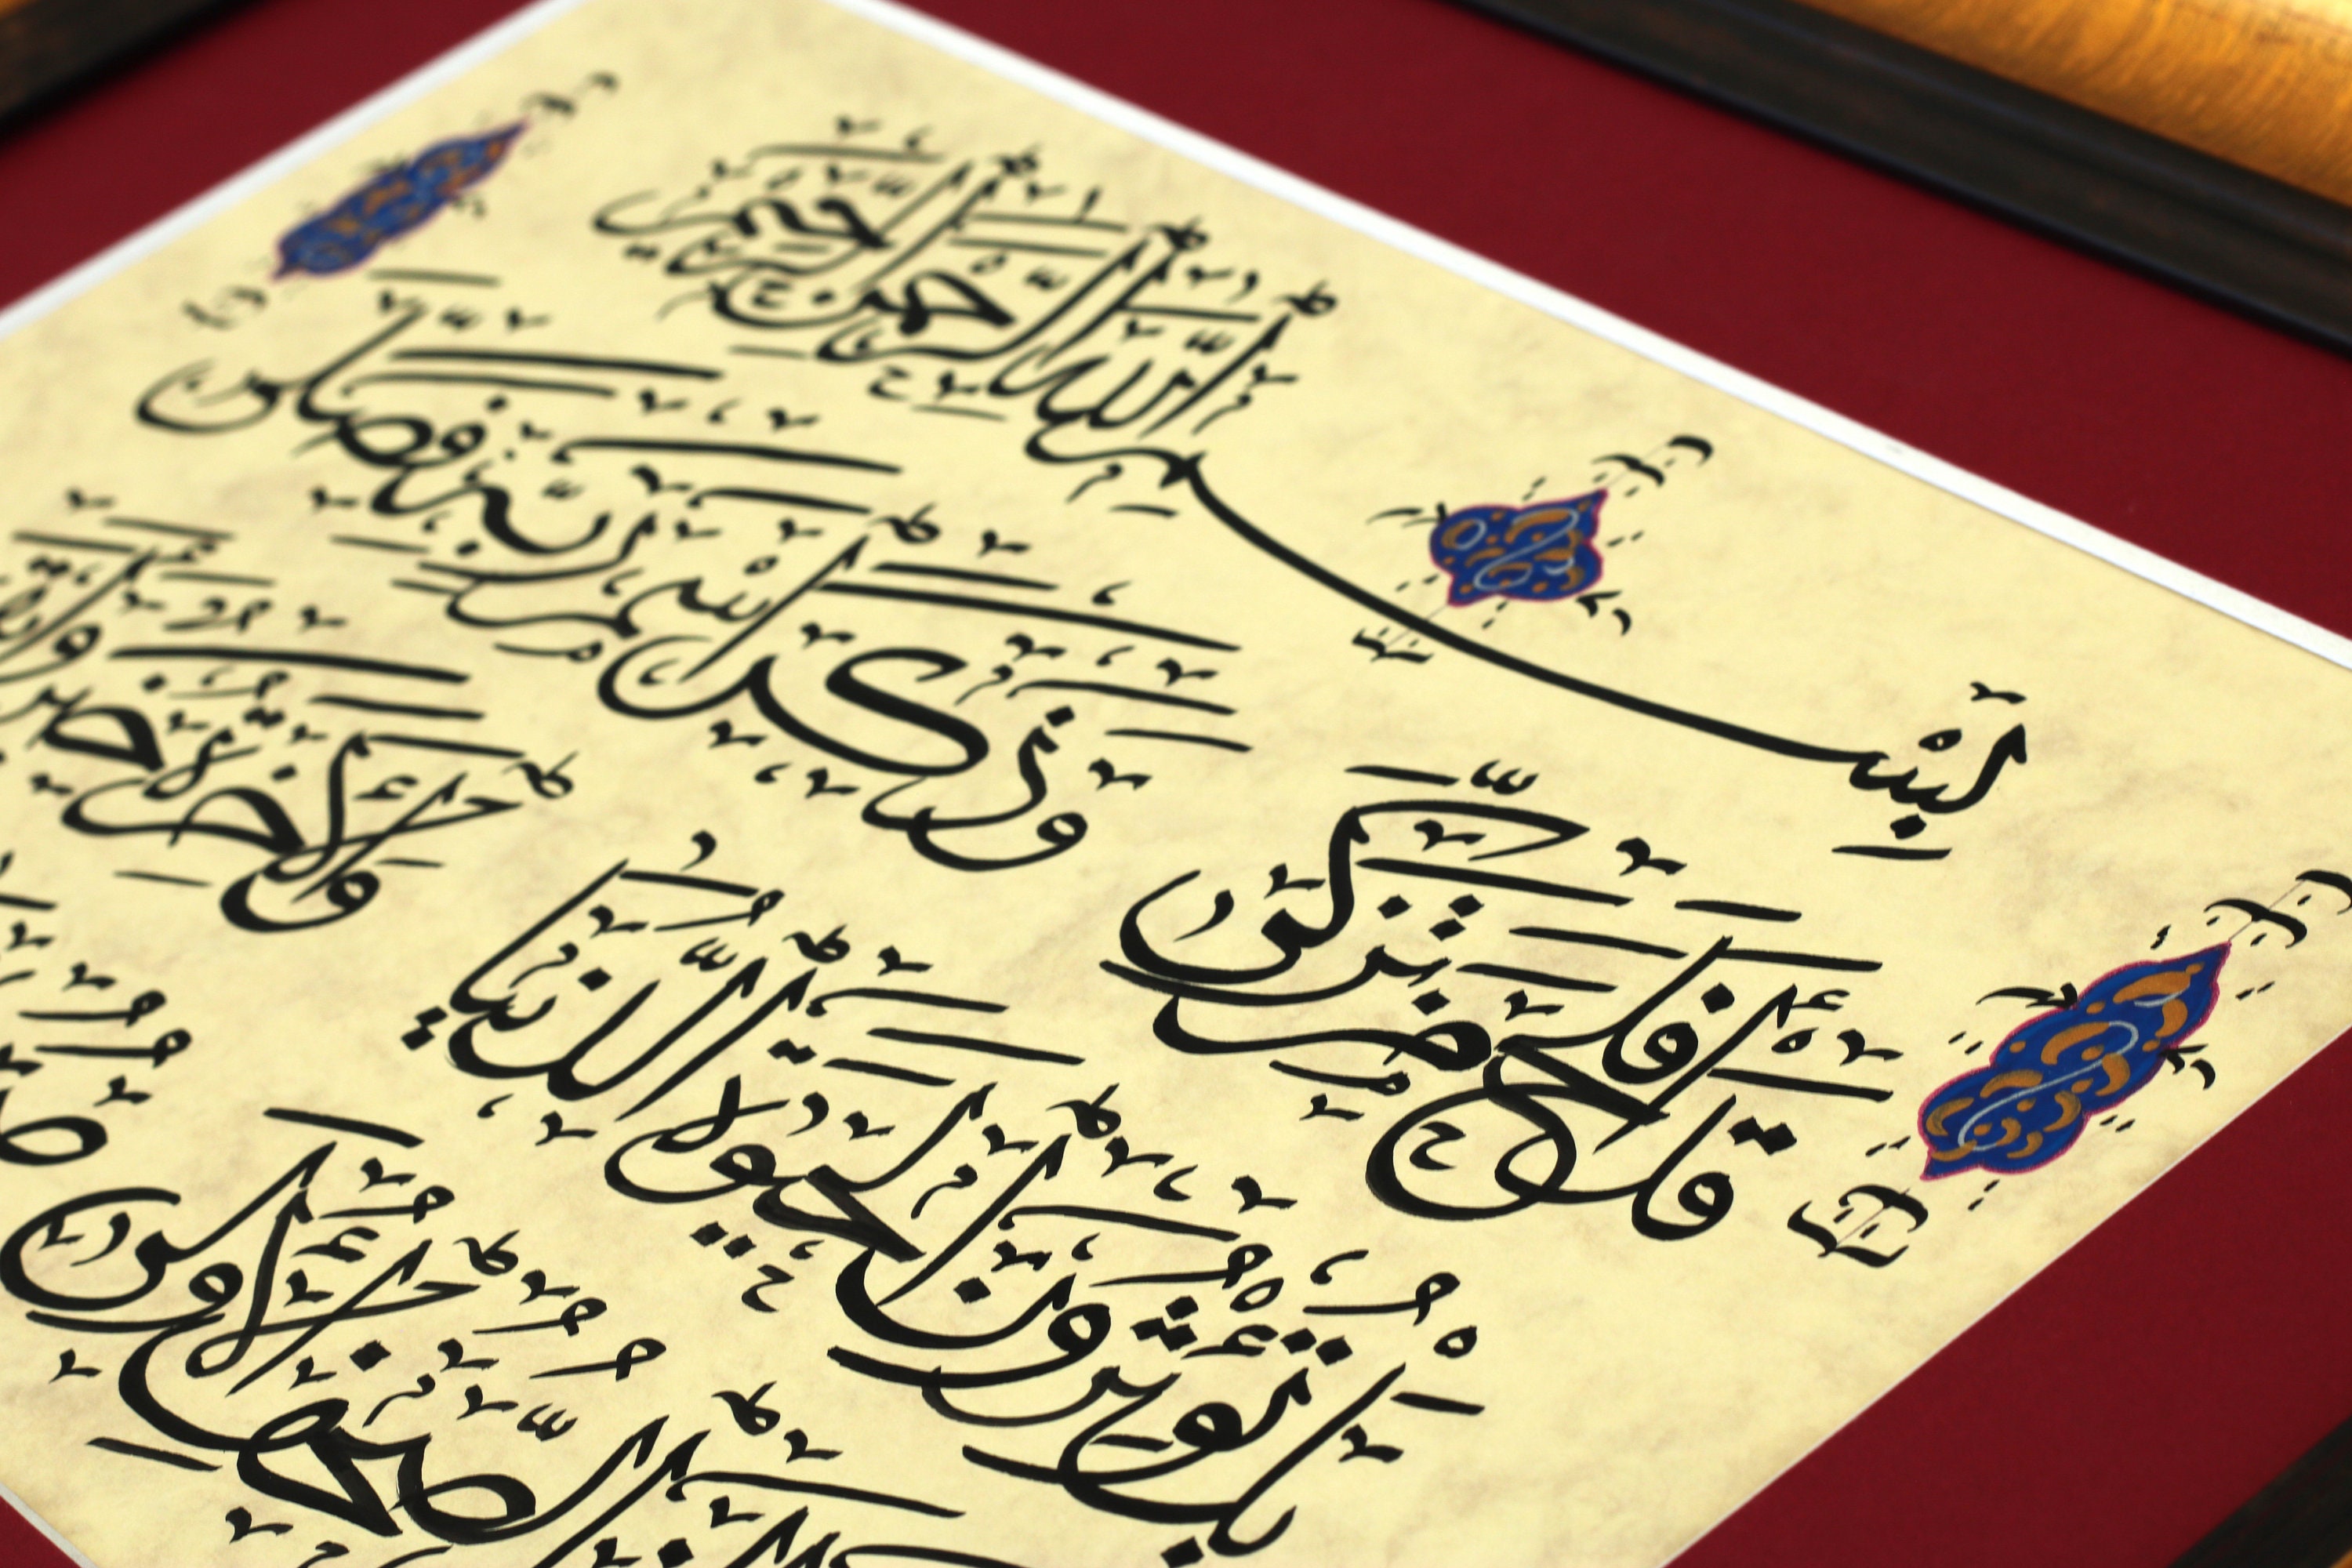 بِسْمِ اللَّهِ الرَّحْمَٰنِ الرَّحِيمِ
قَدْ أَفْلَحَ مَن تَزَكَّىٰ وَذَكَرَ اسْمَ رَبِّهِ فَصَلَّىٰ
بَلْ تُؤْثِرُونَ الْحَيَوٰةَ الدُّنْيَا وَالْآخِرَةُ خَيْرٌ
الصُّحُفِ الْأُولَىٰ